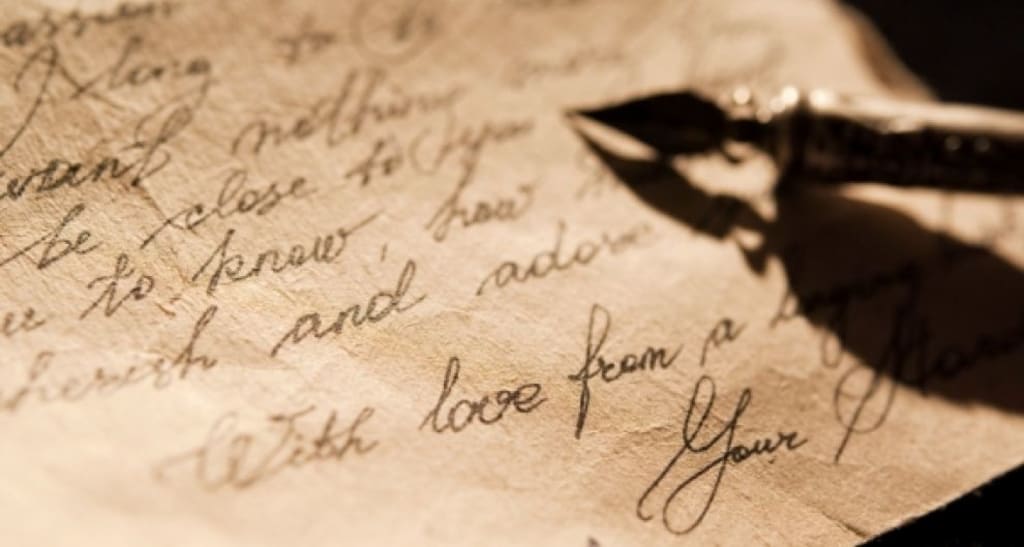 I long to
want nothing more
be close to you
to know, how
cherish and adore
With love from a
Your